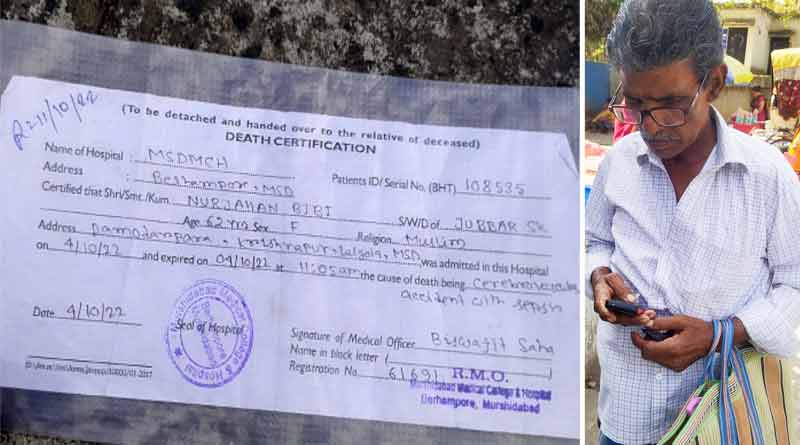 R=11/10/22
(To be detached and handed over to the relative of deceased)
DEATH CERTIFICATION
Name of Hospital : MSDMCH
Address : Berhampore, MSD Patients ID/ Serial No. (BHT) 108535
Certified that Shri/Smt./Kum. NURJAHAN BIBI S/W/D of JUBBAR SK
Age 62 yrs Sex F Religion Muslim
Address Damodarpara, Krishnapur, Lalgola, MSD was admitted in this Hospital
on 4/10/22 and expired on 04/10/22 at 11:05am the cause of death being Cerebrovascular
accident with sepsis
Date 4/10/22
Seal of Hospital
Murshidabad Medical College & Hospital
Signature of Medical Officer Biswajit Saha
Name in block letter (
Registration No. 61691 R.M.O.
Murshidabad Medical College & Hospital
Berhampore, Murshidabad